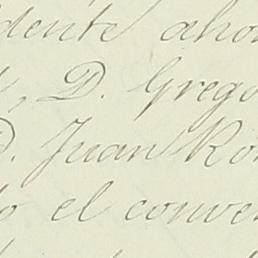 dente ahor
, D. Grego
D. Juan Ro
o el conve